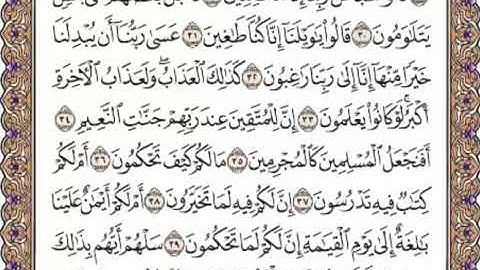 يَتَلَٰوَمُونَ ٣٠ قَالُوا۟ يَٰوَيْلَنَآ إِنَّا كُنَّا طَٰغِينَ ٣١ عَسَىٰ رَبُّنَآ أَن يُبْدِلَنَا
خَيْرًا مِّنْهَآ إِنَّآ إِلَىٰ رَبِّنَا رَٰغِبُونَ ٣٢ كَذَٰلِكَ ٱلْعَذَابُ ۖ وَلَعَذَابُ ٱلْءَاخِرَةِ
أَكْبَرُ ۚ لَوْ كَانُوا۟ يَعْلَمُونَ ٣٣ إِنَّ لِلْمُتَّقِينَ عِندَ رَبِّهِمْ جَنَّٰتِ ٱلنَّعِيمِ ٣٤
أَفَنَجْعَلُ ٱلْمُسْلِمِينَ كَٱلْمُجْرِمِينَ ٣٥ مَا لَكُمْ كَيْفَ تَحْكُمُونَ ٣٦ أَمْ لَكُمْ
كِتَٰبٌ فِيهِ تَدْرُسُونَ ٣٧ إِنَّ لَكُمْ فِيهِ لَمَا تَخَيَّرُونَ ٣٨ أَمْ لَكُمْ أَيْمَٰنٌ عَلَيْنَا
بَٰلِغَةٌ إِلَىٰ يَوْمِ ٱلْقِيَٰمَةِ ۙ إِنَّ لَكُمْ لَمَا تَحْكُمُونَ ٣٩ سَلْهُمْ أَيُّهُم بِذَٰلِكَ